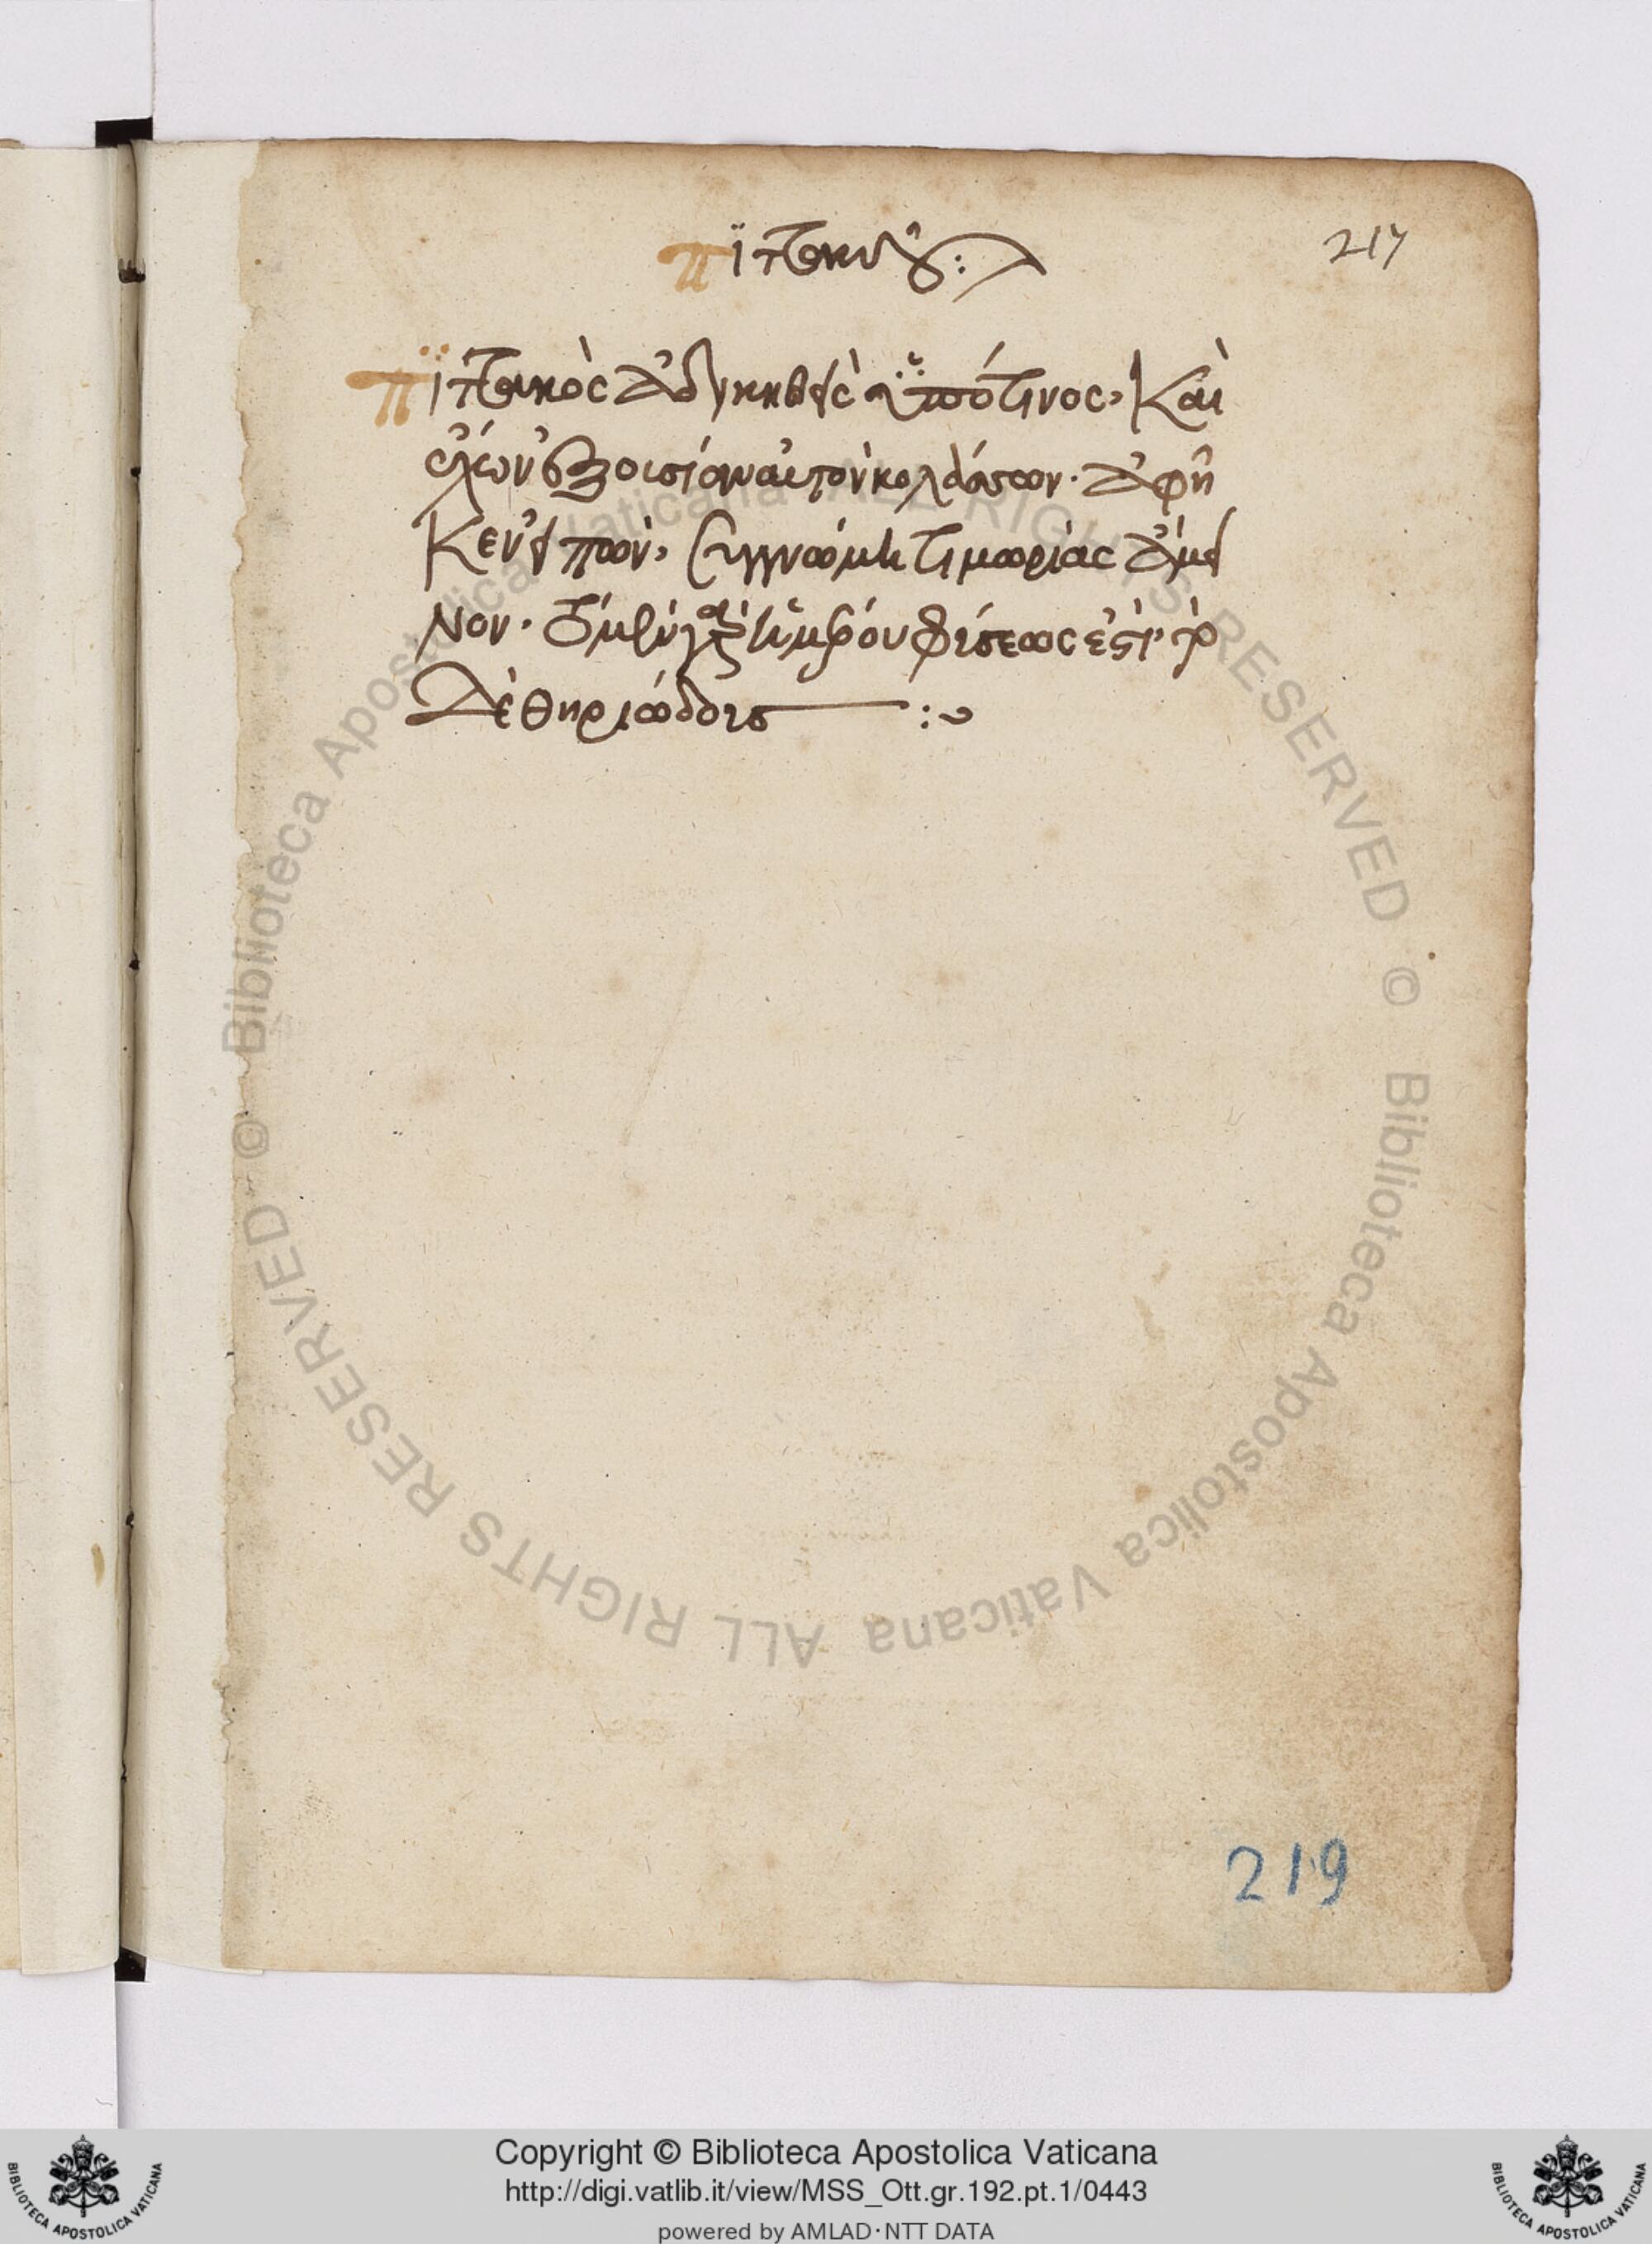 217
πϊττακοῦ :
πϊττακὸς ἀδικηθεὶς ὑπό τινος, καὶ
ἔχων ἐξουσίαν αὐτὸν κολάσαι. ἀφῆ
κεν εἰπὼν, συγγνώμη τιμωρίας ἀμεί
νων. τὸ μὲν γὰρ ἡμέρου φύσεως ἐστὶ, τὸ
δὲ θηριώδους :~
219
Biblioteca Apostolica Vaticana ALL RIGHTS RESERVED ©
Biblioteca Apostolica Vaticana ALL RIGHTS RESERVED ©
Copyright © Biblioteca Apostolica Vaticana
http://digi.vatlib.it/view/MSS_Ott.gr.192.pt.1/0443
powered by AMLAD·NTT DATA
BIBLIOTECA APOSTOLICA VATICANA
BIBLIOTECA APOSTOLICA VATICANA